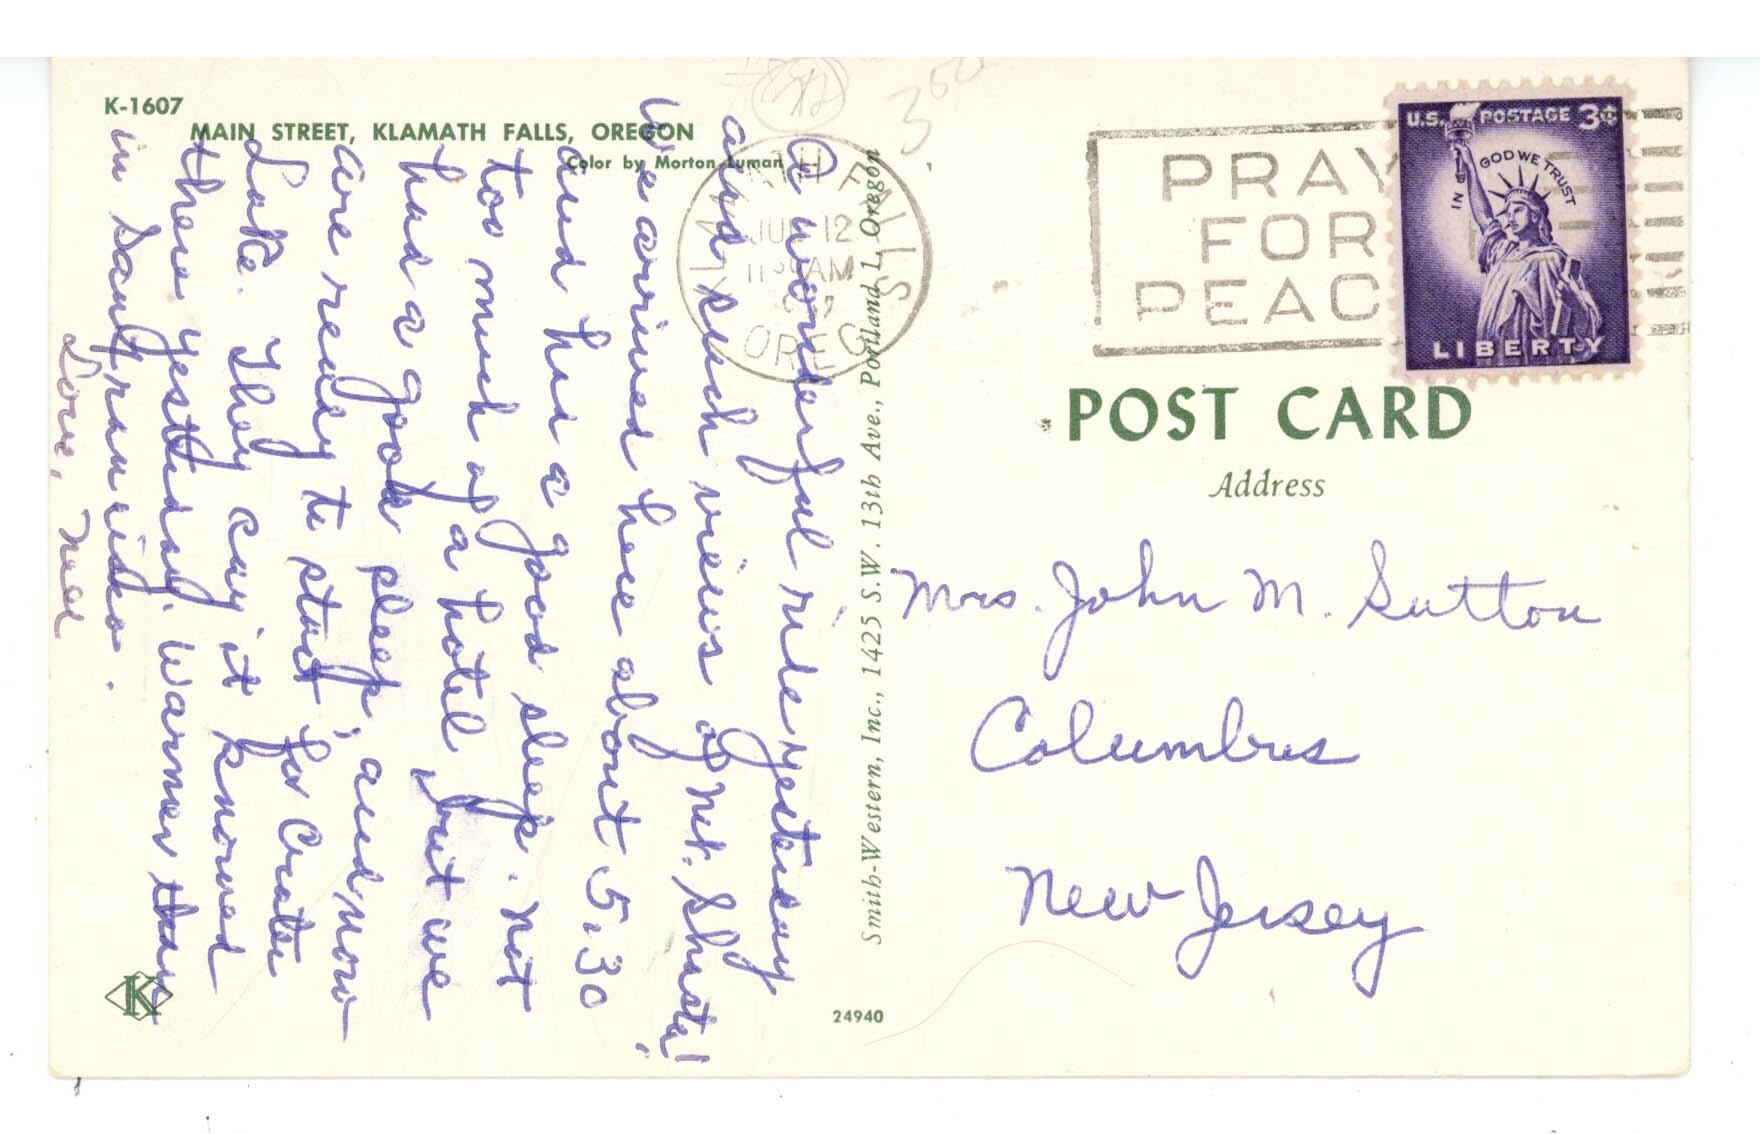 K-1607
MAIN STREET, KLAMATH FALLS, OREGON
Color by Morton Luman
A wonderful ride yesterday
and such views of Mt. Shasta!
We arrived here about 5:30
and had a good sleep. Not
too much of a hotel but we
had a good sleep, and now
are ready to start for Crater
Lake. They say it snowed
there yesterday. Warmer than
in San Francisco.
Love,
Smith-Western, Inc., 1425 S.W. 13th Ave., Portland 1, Oregon
24940
K
350
KLAMATH FALLS
JUN 12
AM
OREG
PRAY
FOR
PEAC
U.S. POSTAGE 3¢
IN GOD WE TRUST
LIBERTY
POST CARD
Address
Mrs. John M. Sutton
Columbus
New Jersey